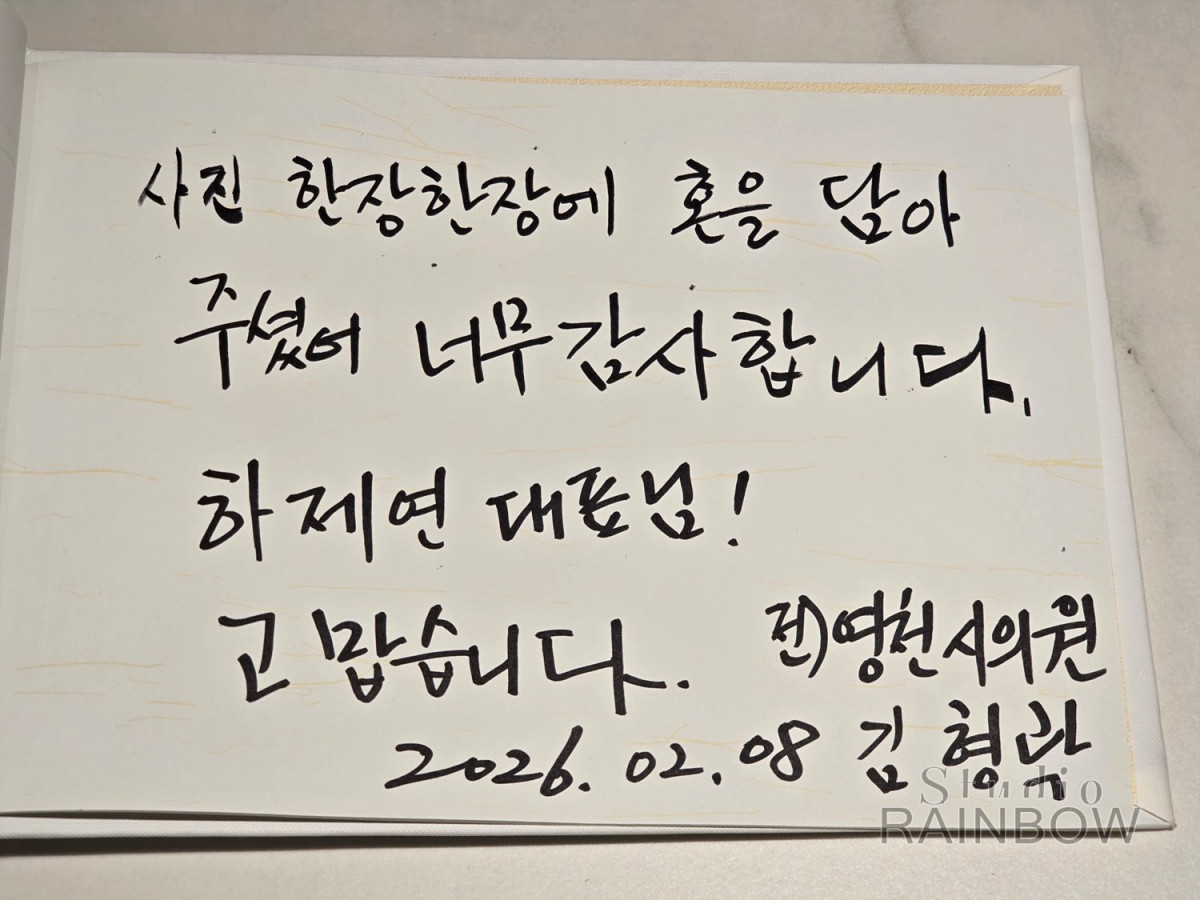 사진 한장한장에 혼을 담아
주셨어 너무감사합니다.
하제연 대표님!
고맙습니다.
전)영천시의원
2026. 02. 08 김형락
Studio
RAINBOW